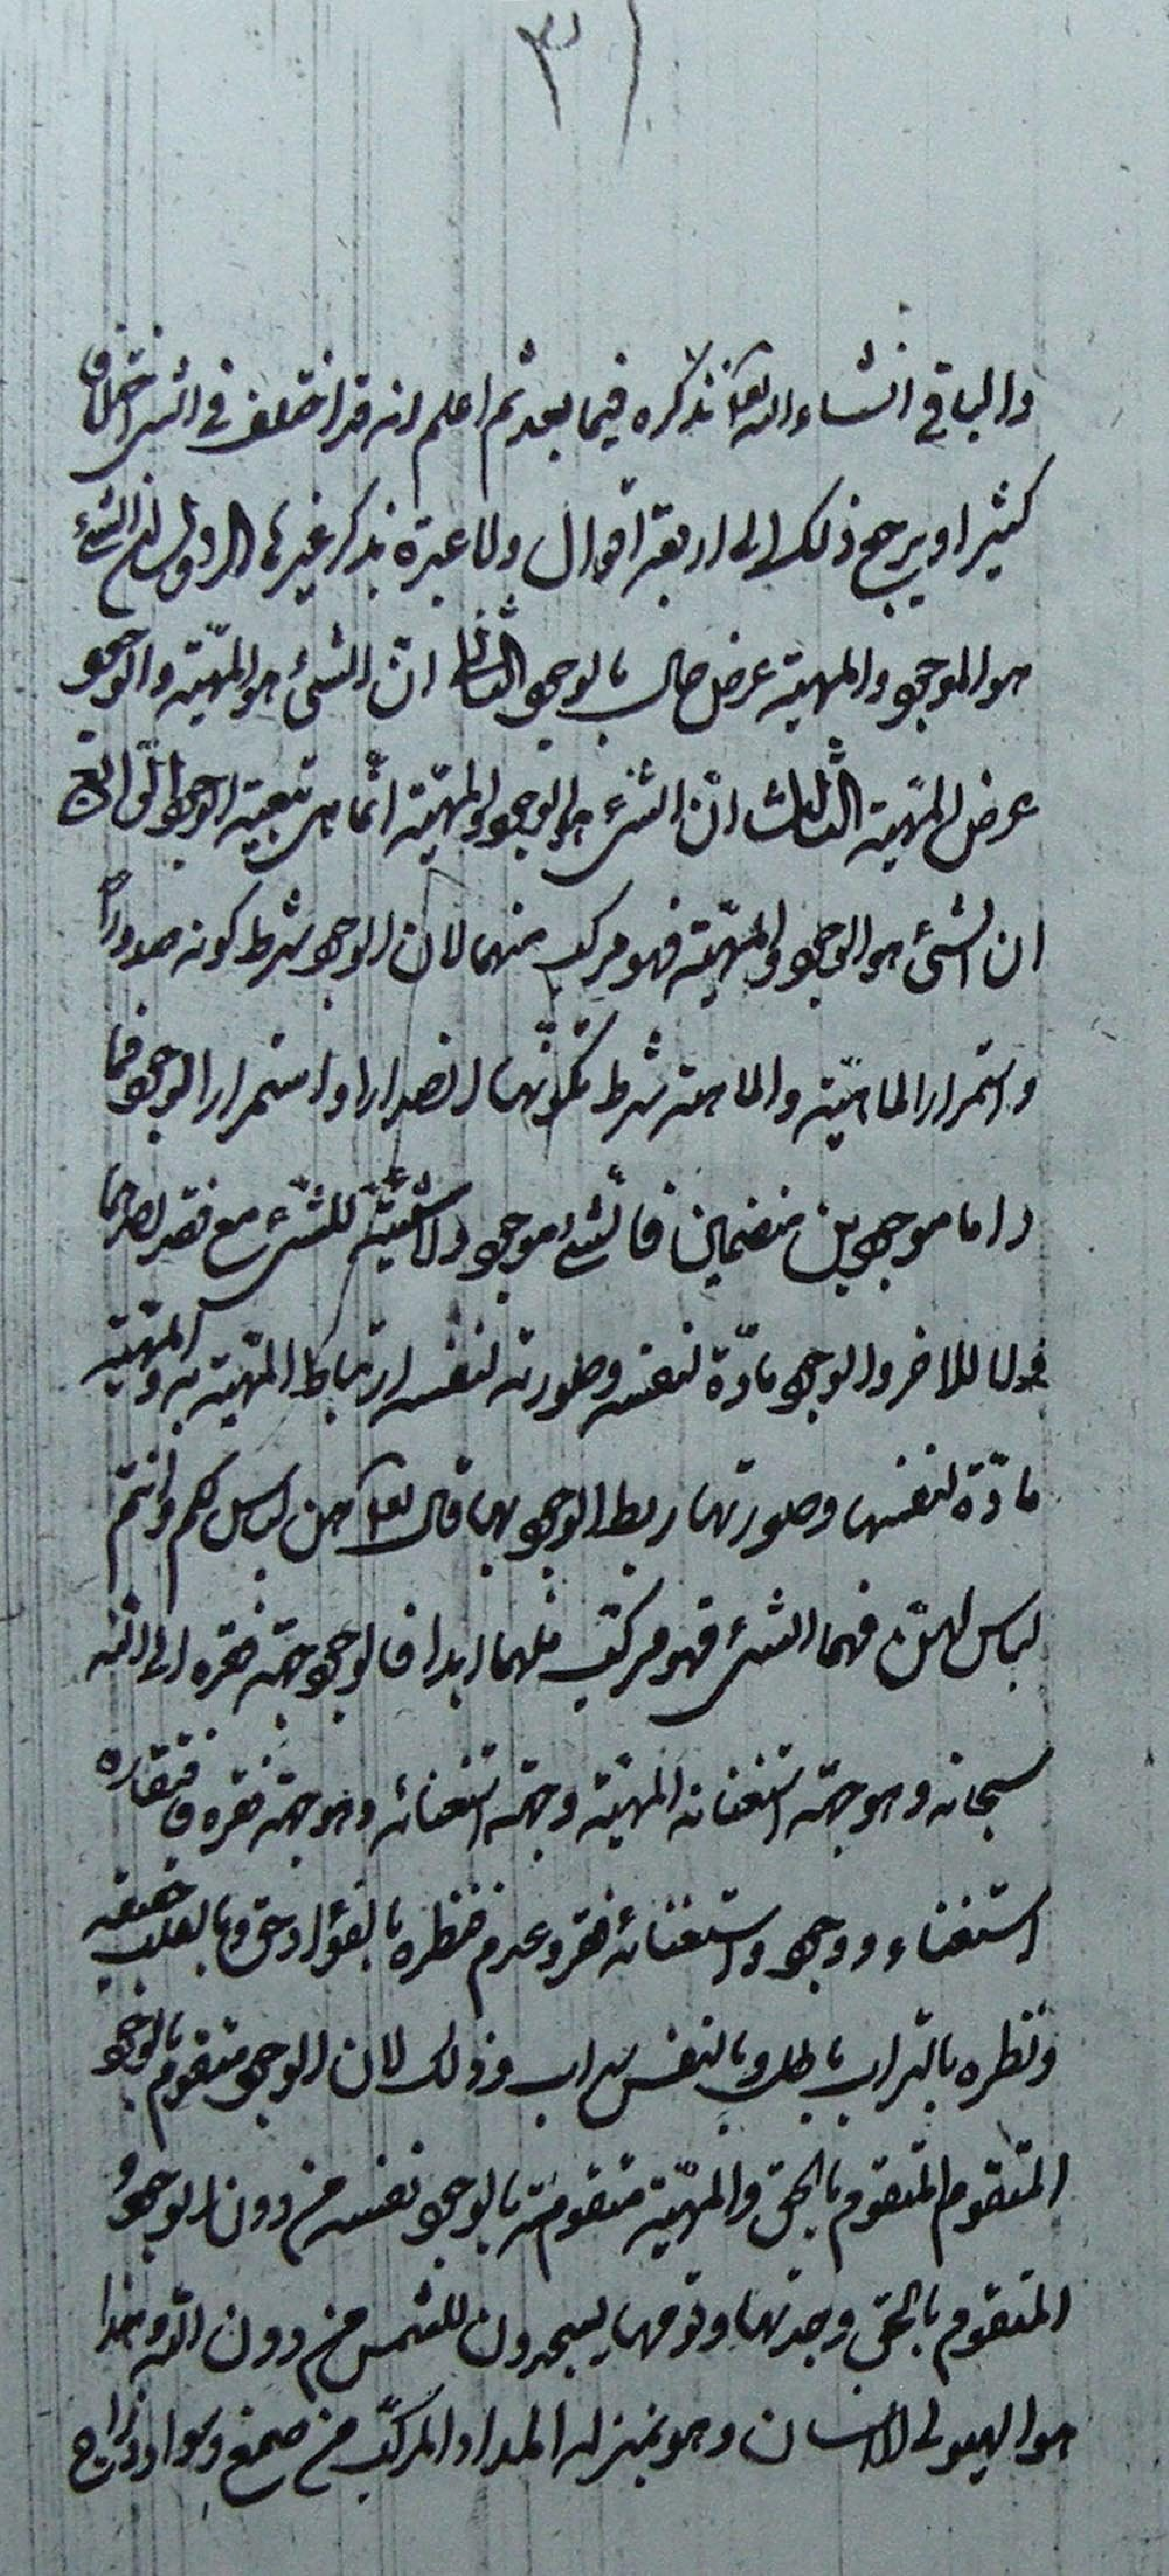 ٣
والباقي انشاء الله تعا نذكره فيما بعد ثم اعلم انه قد اختلف في الشئ اختلافا
كثيرا ويرجع ذلك الى اربعة اقوال ولا عبرة بذكر غيرها الاول ان الشئ
هو الموجو والمهية عرض حال بالوجو الثاني ان الشئ هو المهيّة والوجو
عرض المهيّة الثالث انّ الشئ هو الوجو والمهيّة انّما هى تبعية الوجو الرّابع
ان الشئ هو الوجو والمهيّة فهو مركب منهما لان الوجو شرط كونه صدورا
واستمرار الماهيّة والماهية شرط تكونها انصدارا واستمرار الوجو فما
داما موجوين منضمين فالشئ موجو ولا شيئيّة للشئ مع فقد احدهما
للاخر والوجو مادّة لنفسه وصورته لنفسه ارتباط المهيّة به والمهيّة
مادّة لنفسها وصورتها ربط الوجو بها قال تعا هن لباس لكم وانتم
لباس لهنّ فهما الشئ فهو مركّب منهما ابدا فالوجو جهة فقره الى الله
سبحانه وهو جهة استغنائه المهيّة وجهة استغنائه وهو جهة فقره فافتقاره
استغناء ووجو واستغنائه فقر وعدم فنظره بالفؤاد حق وبالقلب حقيقه
ونظره بالتراب باطل وبالنفس سراب وذلك لان الوجو متقوم بالوجو
المتقوم المتقوم بالحق والمهيّة متقومة بالوجو نفسه من دون الوجو
المتقوم بالحق وجدتها وقومها يسجدون للشمس من دون الله وهذا
هو الهيولى الانسان وهو بمنزلة المداد المركّب من صمغ وسواد وزاج